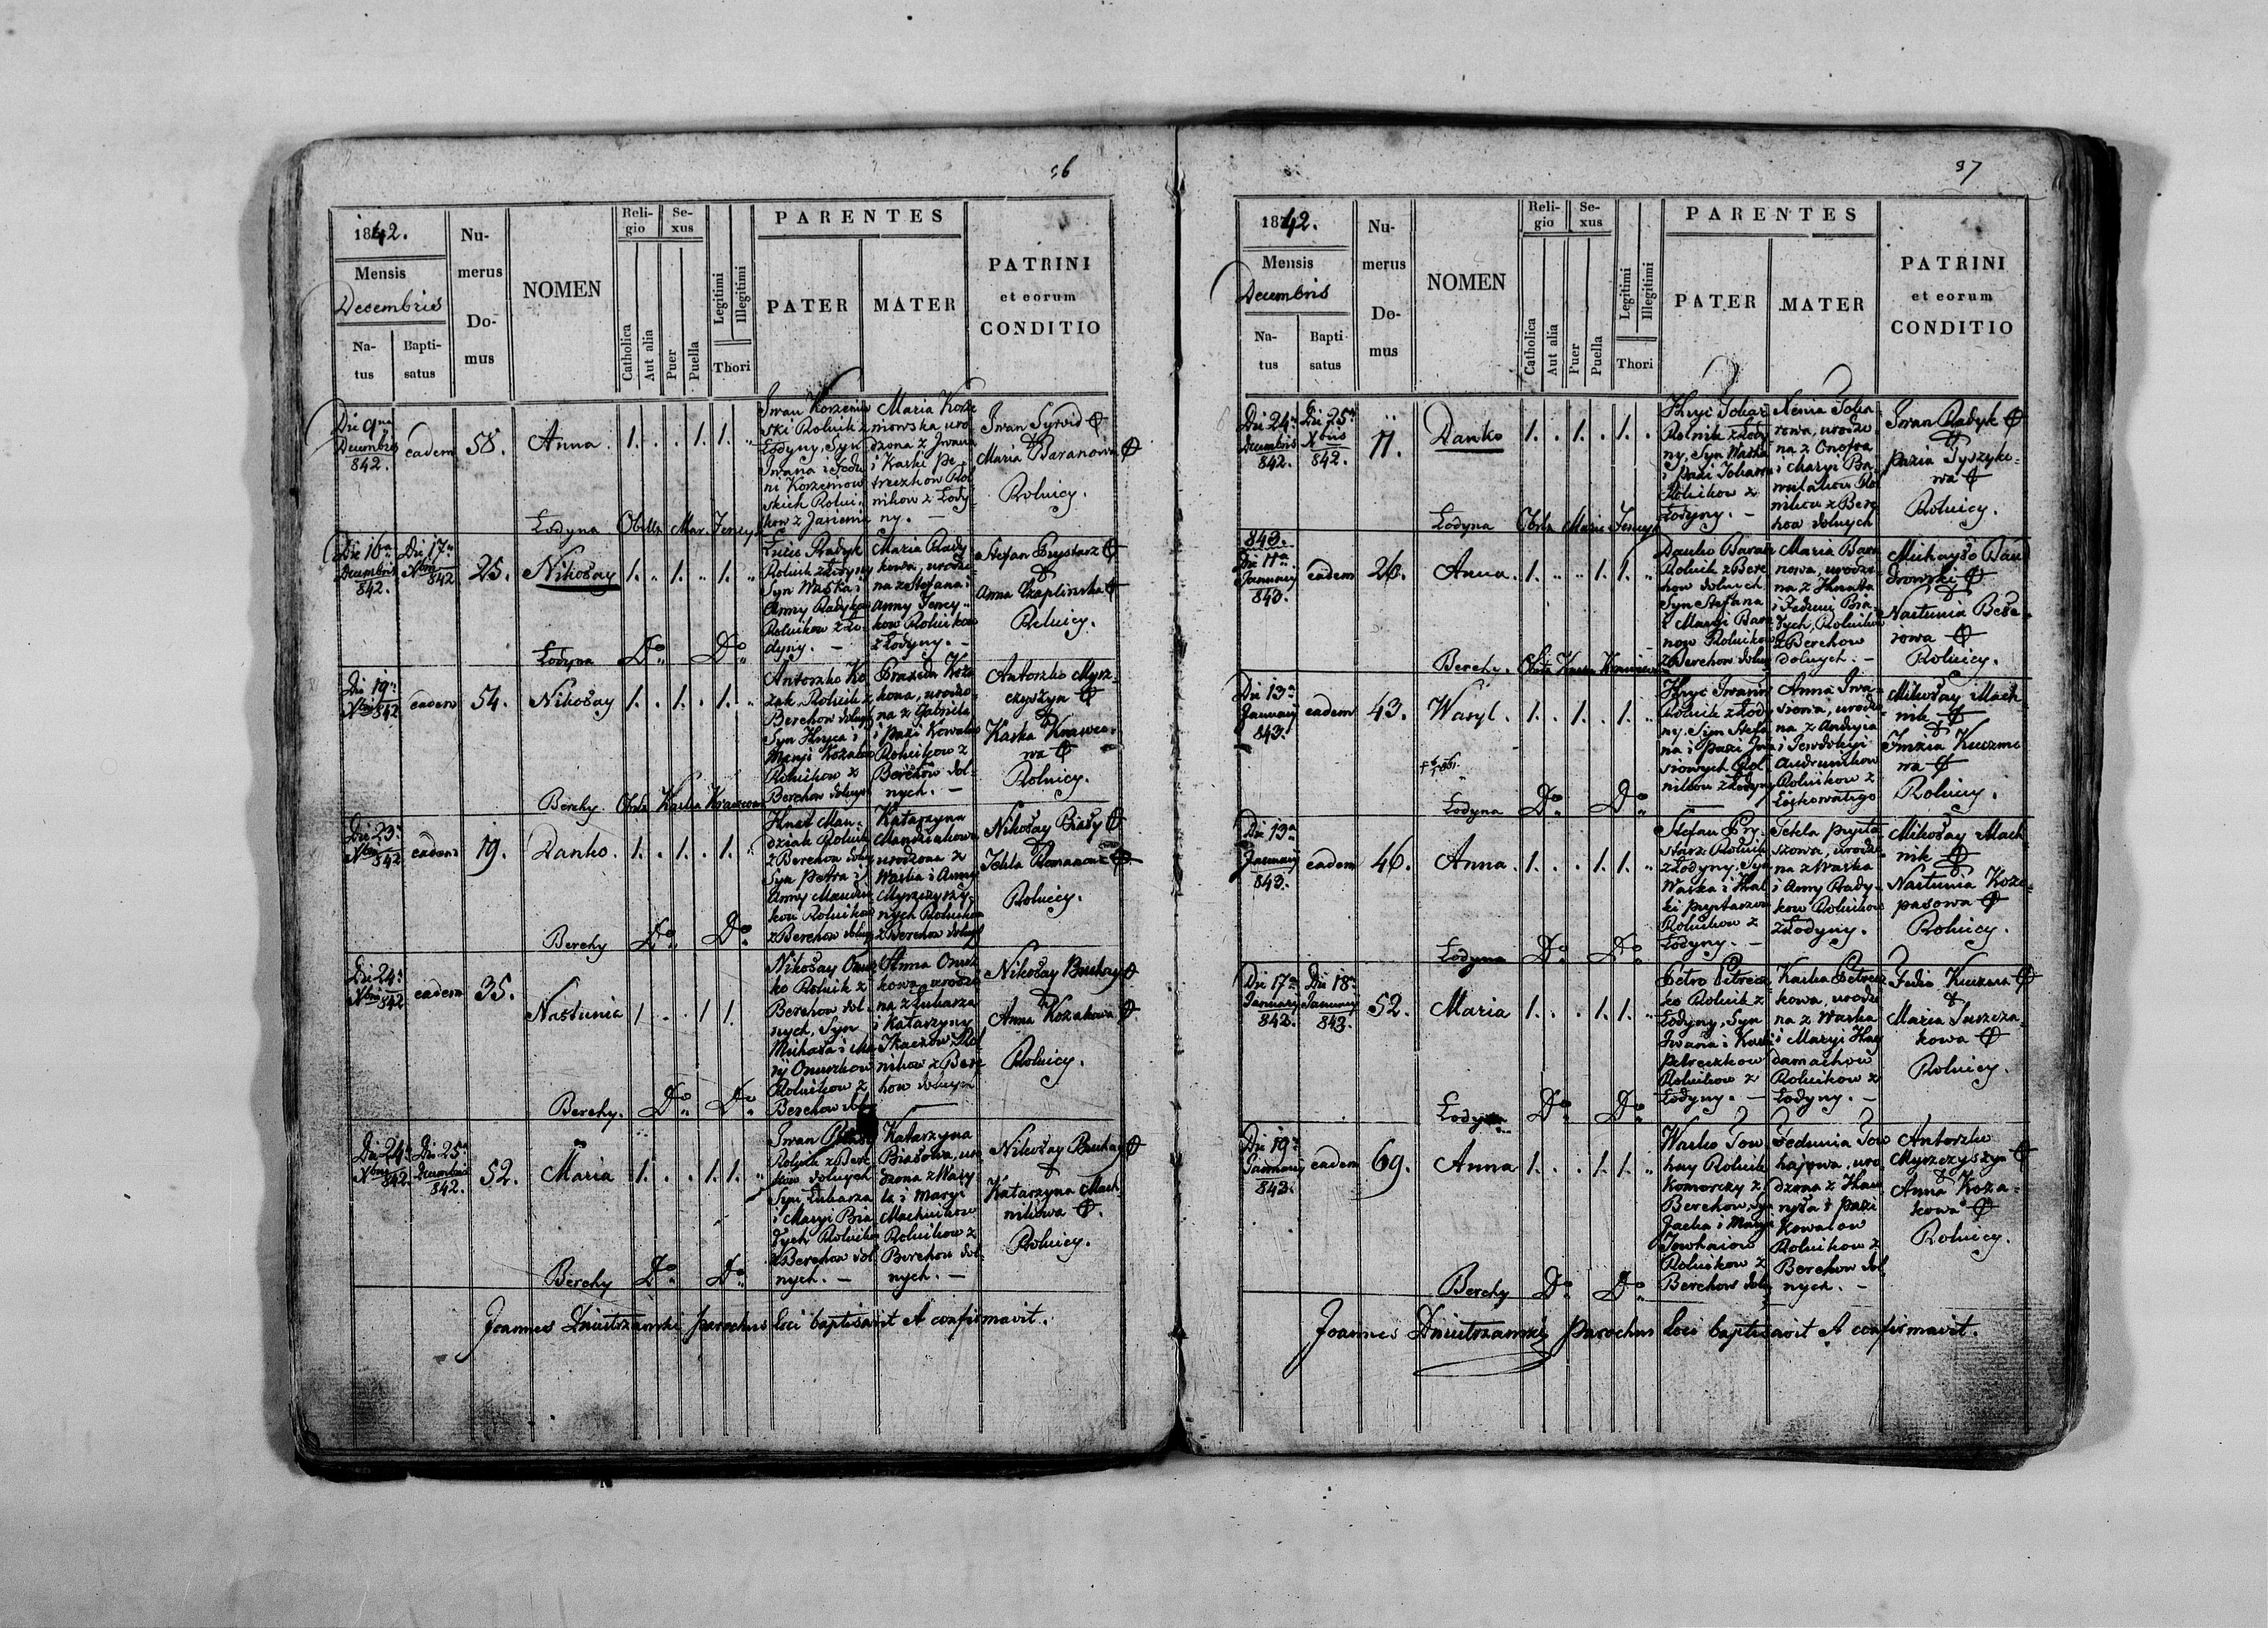 96
1842.
Mensis
Decembris
Na-
tus
Bapti-
satus
Nu-
merus
Do-
mus
NOMEN
Reli-
gio
Catholica
Aut alia
Se-
xus
Puer
Puella
Legitimi
Illegitimi
Thori
PARENTES
PATER
MATER
PATRINI
et eorum
CONDITIO
Die 9na
Decembris
842.
eadem
58.
Anna.
1. . . 1. 1.
Łodyna
Iwan Korzeniow
ski Rolnik z
Łodyny, Syn
Iwana i Fedu
ni Korzeniow
skich Rolni-
kow z
Maria Korze
niowska, uro
dzona z Iwana
i Kaski Pe-
treczkow Rol
nikow z Łody-
ny. —
Iwan Syvid
Maria Baranowa
Rolnicy.
Die 16a
Decembris
842.
Die 17a
Xbris
842
25.
Nikołay
1. . 1. . 1.
Łodyna
Do
Do
Radyk
Rolnik z Łodyny
Syn Waśka i
Anny Radykow
Rolnikow z Ło-
dyny. —
Maria Rady
kowa, urodzo
na z Stefana i
Anny Jency-
kow Rolnikow
z Łodyny. —
Stefan Prystarz
Anna Czaplinska
Rolnicy.
Die 19a
Xbris 842
eadem
54.
Nikołay
1. . 1. . 1.
Berchy.
Antoszko Ko
zak Rolnik z
Berchow dolnych
Syn Hryca i
Maryi Kozakow
Rolnikow z
Berchow dolnych
Koza
kowa, urodzo
na z Gabriela
i Pazi Kowalow
Rolnikow z
Berchow dol-
nych. —
Antoszko Mysz-
czyszyn
Kaska Krawco-
wa
Rolnicy.
Die 23a
Xbris 842
eadem
19.
Danko.
1. . 1. . 1.
Berchy
Do
Do
Hnat Man-
dziak Rolnik
z Berchow dolnych
Syn Petra i
Anny
Rolnikow
z Berchow dolnych
Katarzyna
Mandziakowa
urodzona z
Waśka i Anny
nych Rolnikow
z Berchow dolnych
Nikołay Biały
Tekla Romanowa
Rolnicy.
Die 24a
Xbris 842
eadem
35.
Nastunia
1. . . 1 1.
Berchy.
Do
Do
Nikołay Onusz
ko Rolnik z
Berchow dol-
nych, Syn
Michała i Ma
ryi Onuszkow
Rolnikow z
Berchow dol
Anna Onusz
kowa urodzo
na z Łukarza
i Katarzyny
Tkaczow Rol
nikow z Ber-
chow dolnych
Nikołay Buchay
Anna Kozakowa
Rolnicy.
Die 24a
Xbris
842
Die 25a
Decembris
842.
52.
Maria
1. . . 1. 1.
Berchy
Do
Do
Iwan
Rolnik z Ber
chow dolnych
Syn Łukarza
i Maryi Bia
łych Rolnikow
z Berchow dol
nych. —
Katarzyna
Białowa, uro
dzona z Wasy
la i Maryi
Machnikow
Rolnikow z
Berchow dol-
nych. —
Nikołay Buchay
Katarzyna Mach
nikowa
Rolnicy.
Joannes Dniestrzanski parochus loci baptisavit et confirmavit.
97
1842.
Mensis
Decembris
Na-
tus
Bapti-
satus
Nu-
merus
Do-
mus
NOMEN
Reli-
gio
Catholica
Aut alia
Se-
xus
Puer
Puella
Legitimi
Illegitimi
Thori
PARENTES
PATER
MATER
PATRINI
et eorum
CONDITIO
Die 24a
Decembris
842.
Die 25a
Xbris
842.
11.
Danko
1. . 1. . 1. .
Łodyna
Hryć
Rolnik z Łody
ny, Syn Waśka
i Pazi
Rolnikow z
Łodyny. —
rowa, urodzo
na z Onofra
i Maryi
Rol
nikow z Ber
chow dolnych
Iwan Radyk
Pazia Tyszyko-
wa
Rolnicy.
843.
Die 11a
January
843.
eadem
26.
Anna.
1. . . 1. 1.
Berchy.
Danko Baran
Rolnik z Ber
chow dolnych
Syn Stefana
i Maryi Bara
now Rolnikow
z Berchow dolnych
Maria Bara
nowa, urodzo
na z Hnatta
i Feduni Bia-
łych, Rolnikow
z Berchow
dolnych. —
Michayło
Nastunia
rowa
Rolnicy.
Die 13a
January
843.
eadem
43.
Wasyl.
1. . 1. . 1.
Łodyna
Do
Do
Hryć
Rolnik z Łody
ny. Syn Stefa
na i Pazi
Rol
nikow z Łodyny
Anna Iwa-
siowa, urodzo
na z Andryia
i Jewdokyi
Andrunikow
Rolnikow z
Liskowatego
Mikołay Mach
nik
Kuczme
wa
Rolnicy.
Die 13a
January
843.
eadem
46.
Anna.
1. . . 1. 1.
Łodyna
Do
Do
Stefan Pry-
starz Rolnik
z Łodyny, Syn
Waśka i
Rolnikow z
Łodyny. —
Tekla Prysta
szowa, urodzo
na z Waśka
i Anny Rady-
kow Rolnikow
z Łodyny.
Mikołay Mach
nik
Nastunia
pasowa
Rolnicy.
Die 17a
January
842.
Die 18a
January
843.
52.
Maria
1. . . 1. 1.
Łodyna
Do
Do
Petro Petrecz
ko Rolnik z
Łodyny, Syn
Iwana i Kaski
Petreczkow
Rolnikow z
Łodyny. —
Kaska Petrecz
kowa, urodzo
na z Waśka
i Maryi
Rolnikow z
Łodyny. —
Fedio Kuczma
Maria Suszcza-
kowa
Rolnicy.
Die 19a
January
843.
eadem
69.
Anna
1. . . 1. 1.
Berchy
Do
Do
Wasko
Rolnik
Komorczy z
Berchow Syn
Jacka i Maryi
Rolnikow z
Berchow dol
Fedunia
uro
dzona z Haw
ryła i Pazi
Kowalow
Rolnikow z
Berchow dol
nych. —
Antoszko
Myszczyszyn
Anna Koza-
kowa
Rolnicy.
Joannes Dniestrzanski Parochus loci baptisavit et confirmavit.